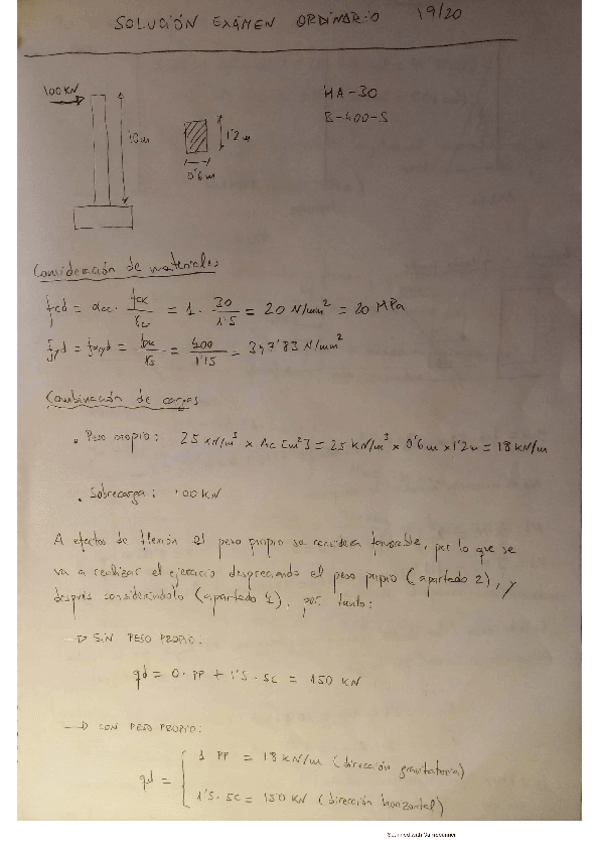 SOLUCIÓN EXÁMEN ORDINARIO 19/20
100KN
10m
1'2m
0'6m
HA-30
B-400-S
Consideración de materiales
fcd = αcc · fck/γc = 1 · 30/1'5 = 20 N/mm² = 20 MPa
fyd = fyk/γs = 400/1'15 = 347'83 N/mm²
Combinación de cargas
• Peso propio: 25 KN/m³ x Ac [m²] = 25 KN/m³ x 0'6m x 1'2m = 18 KN/m
• Sobrecarga: 100 KN
A efectos de flexión el peso propio se considera favorable, por lo que se
va a realizar el ejercicio despreciando el peso propio (apartado 2), y
después considerándolo (apartado 1), por tanto:
→ SIN PESO PROPIO:
qd = 0 · PP + 1'5 · SC = 150 KN
→ CON PESO PROPIO:
qd = { 1 PP = 18 KN/m (dirección gravitatoria)
1'5 · SC = 150 KN (dirección horizontal)